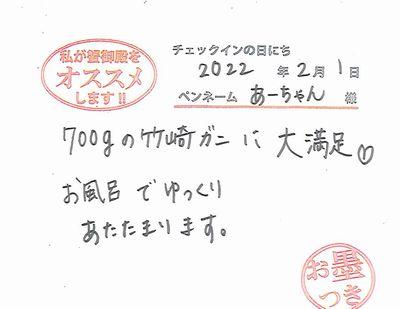 私が蟹御殿を
オススメ
します!!
チェックインの日にち
2022 年 2月 1日
ペンネーム あーちゃん 様
700gの竹崎ガニに 大満足
お風呂でゆっくり
あたたまります。
お墨
つき